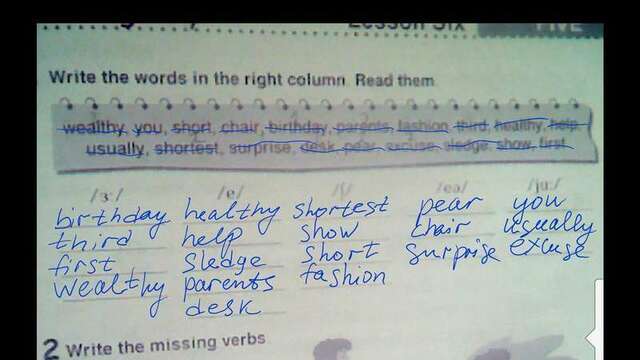 Lesson Six
FIVE
Write the words in the right column. Read them.
wealthy, you, short, chair, birthday, parents, fashion, third, healthy, help,
usually, shortest, surprise, desk, pear, excuse, sledge, show, first
/ɜː/ /e/ /ʃ/ /eə/ /juː/
birthday healthy shortest pear you
third help show chair usually
first sledge short surprise excuse
wealthy parents fashion
desk
2 Write the missing verbs